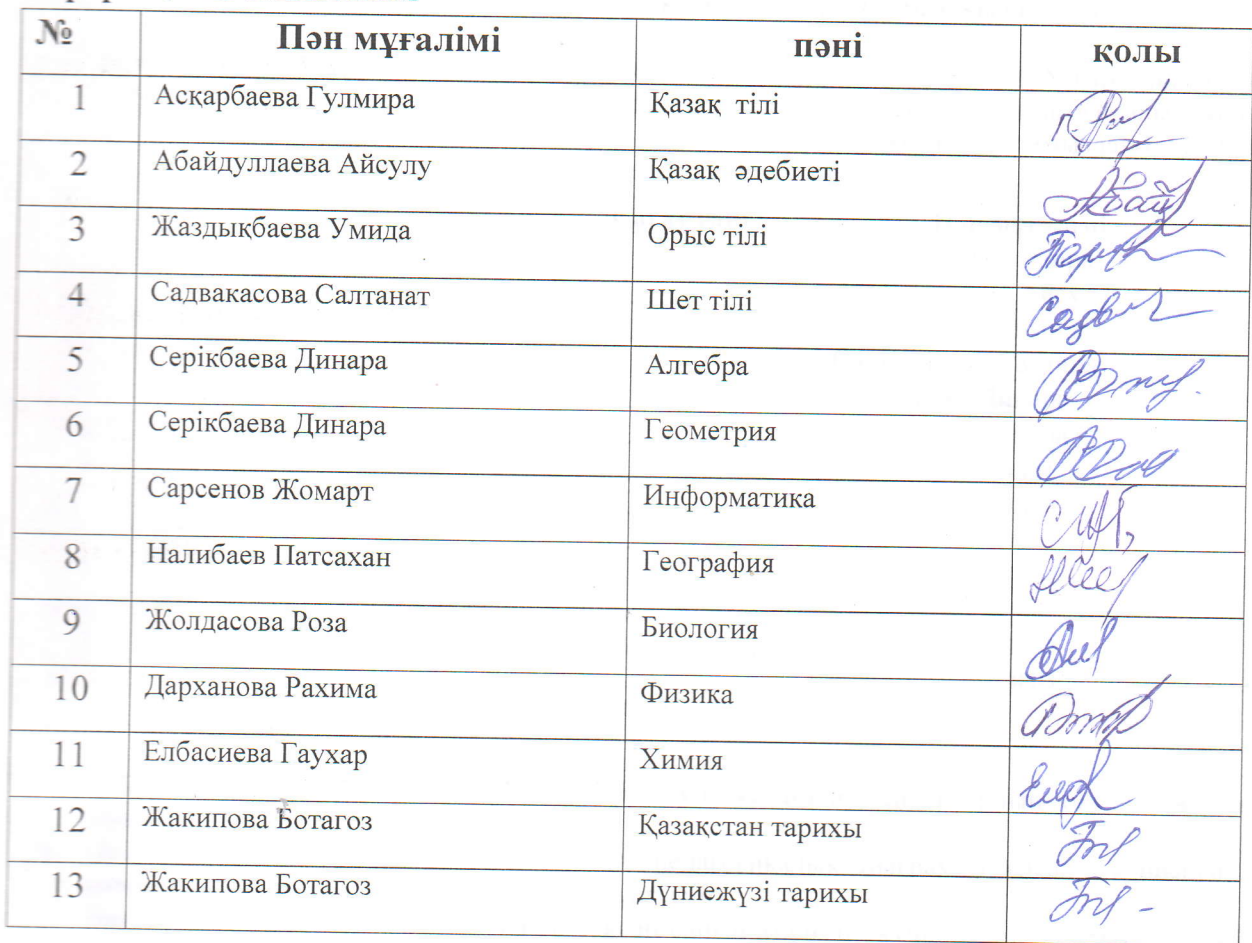 № Пән мұғалімі пәні қолы
1 Асқарбаева Гулмира Қазақ тілі
2 Абайдуллаева Айсулу Қазақ әдебиеті
3 Жаздықбаева Умида Орыс тілі
4 Садвакасова Салтанат Шет тілі
5 Серікбаева Динара Алгебра
6 Серікбаева Динара Геометрия
7 Сарсенов Жомарт Информатика
8 Налибаев Патсахан География
9 Жолдасова Роза Биология
10 Дарханова Рахима Физика
11 Елбасиева Гаухар Химия
12 Жакипова Ботагоз Қазақстан тарихы
13 Жакипова Ботагоз Дүниежүзі тарихы